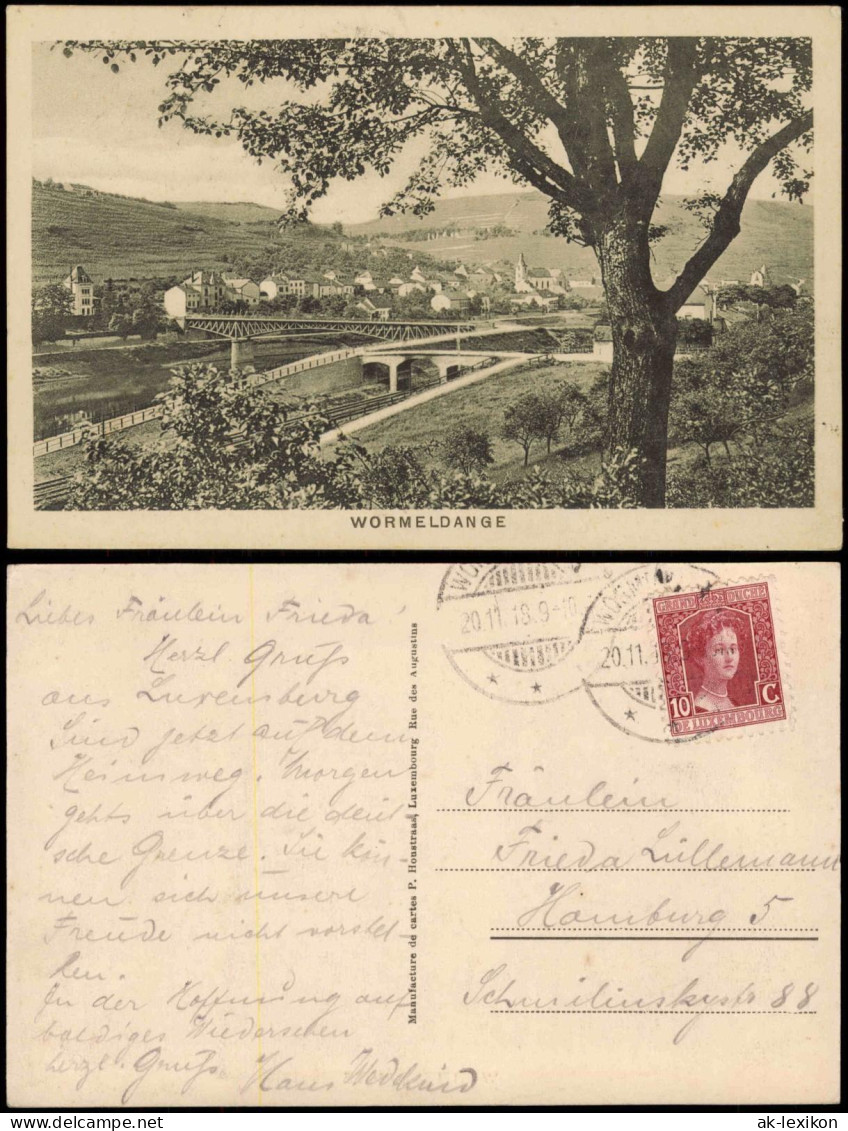 WORMELDANGE
Liebes Fräulein Frieda!
Herzl Gruß
aus Luxenburg
Sind jetzt auf dem
Heimweg. Morgen
gehts über die deut-
sche Grenze. Sie kön-
nen sich unsere
Freude nicht vorstel-
len.
In der Hoffnung auf
baldiges Wiedersehen
herzl. Gruß Hans Weddkind
Manufacture de cartes P. Houstraas, Luxembourg Rue des Augustins
20.11.18.9-10
20.11.1
GRAND DUCHE
10 C
DE LUXEMBOURG
Fräulein
Frieda Lüllemann
Hamburg 5
Schmilinskystr 88
ak-lexikon